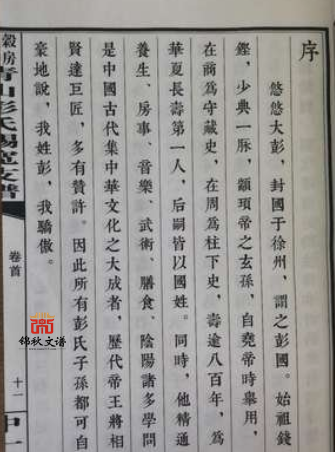 序
悠悠大彭，封國于徐州，謂之彭國。始祖錢
鏗，少典一脉，顓頊帝之玄孫，自堯帝時舉用，
在商爲守藏史，在周爲柱下史，壽逾八百年，爲
華夏長壽第一人，后嗣皆以國姓。同時，他精通
養生、房事、音樂、武術、膳食、陰陽諸多學問
是中國古代集中華文化之大成者，歷代帝王將相
賢達巨匠，多有贊許。因此所有彭氏子孫都可自
豪地說，我姓彭，我驕傲。
穀房青山彭氏錫寬支譜
卷首
十一
錦秋文譜